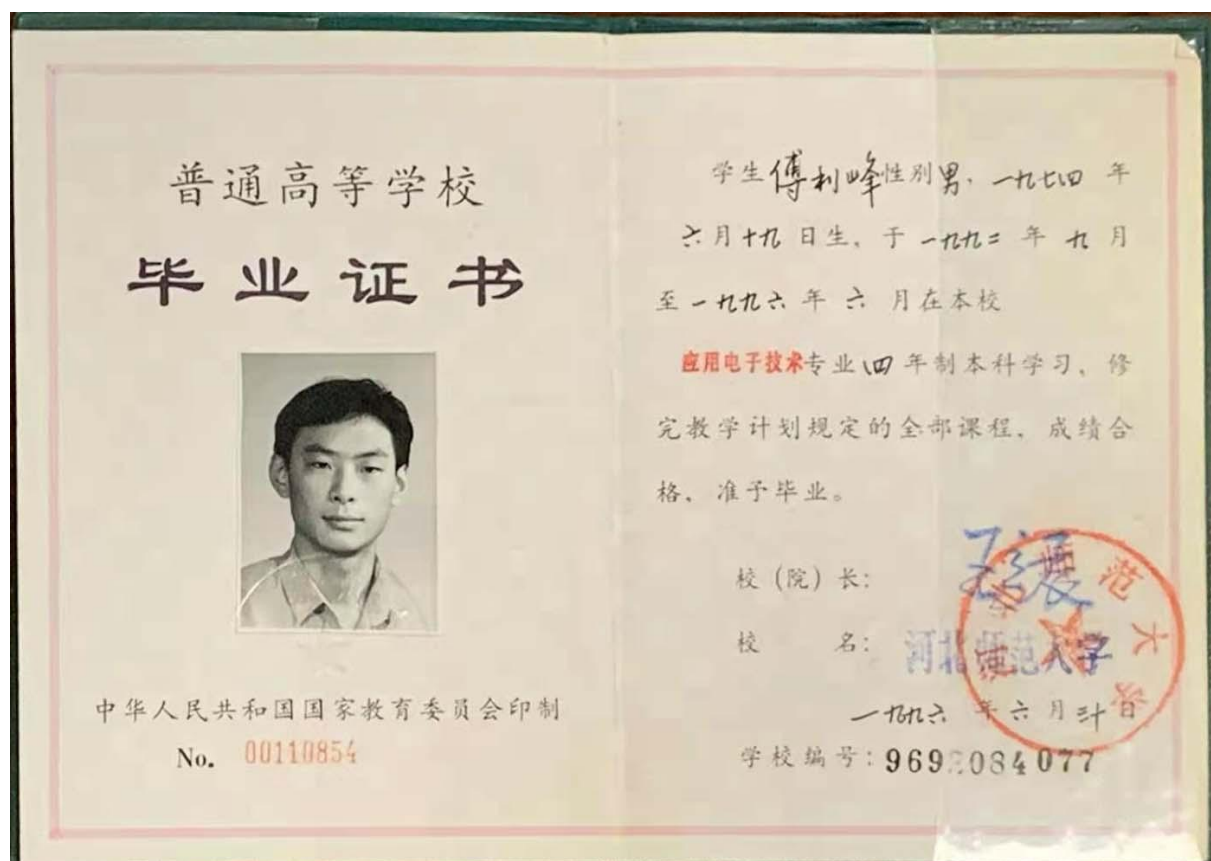 普通高等学校
毕业证书
中华人民共和国国家教育委员会印制
No. 00110854
学生傅利峰性别男、一九七四年
六月十九日生、于一九九二年九月
至一九九六年六月在本校
应用电子技术专业四年制本科学习、修
完教学计划规定的全部课程、成绩合
格、准予毕业。
校（院）长：
校名：河北师范大学
一九九六年六月三十日
学校编号：9692084077